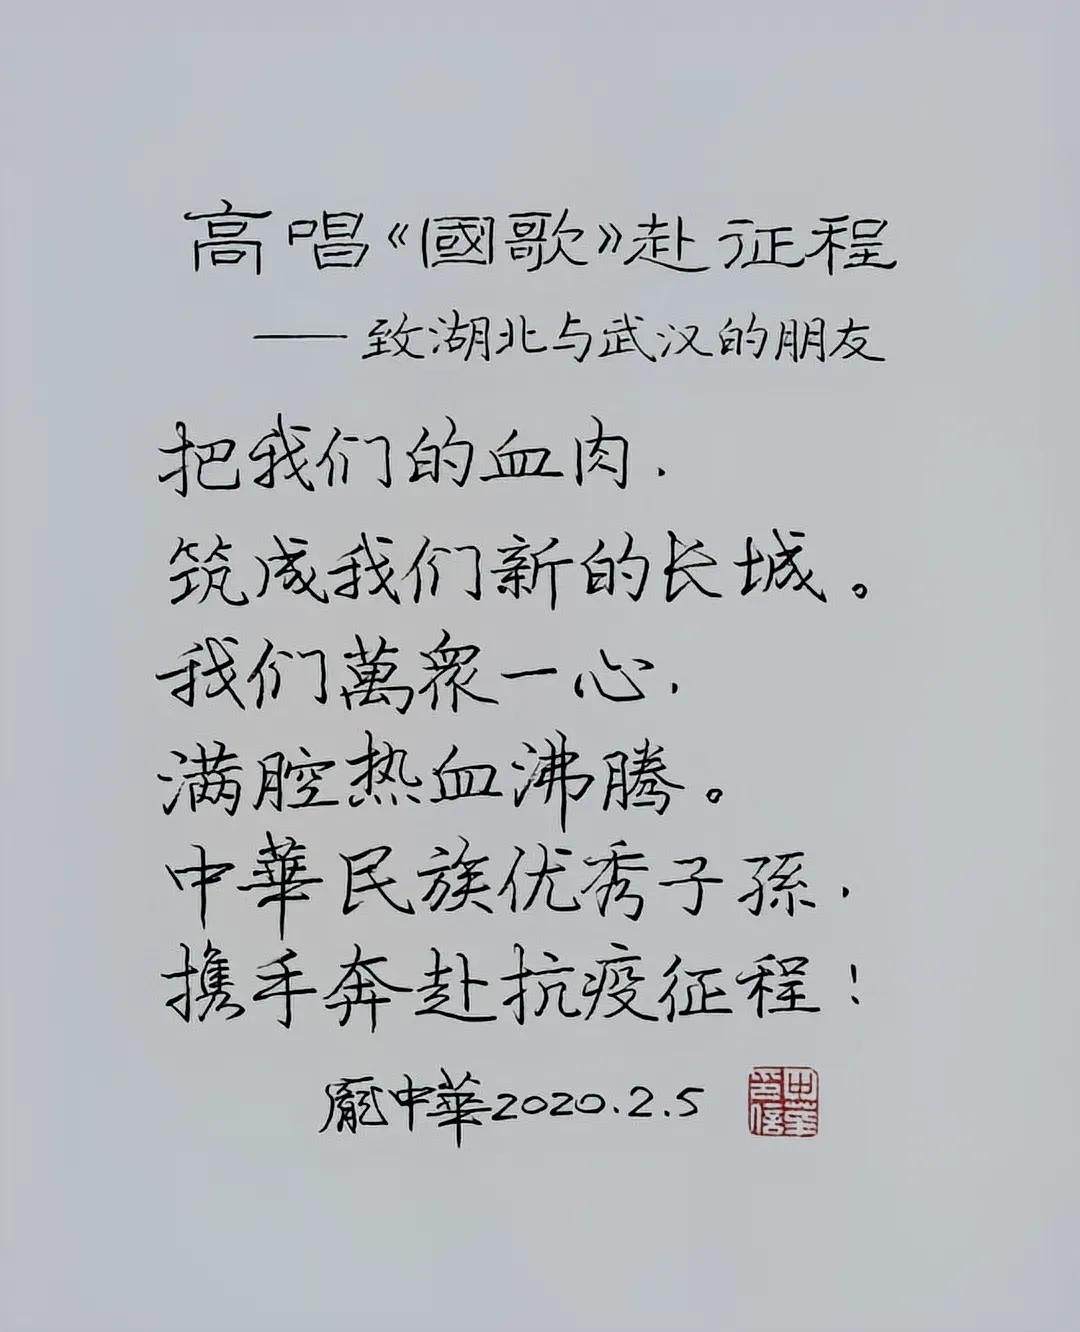 高唱《國歌》赴征程
——致湖北与武汉的朋友
把我们的血肉.
筑成我们新的长城。
我们萬衆一心.
满腔热血沸腾。
中華民族优秀子孫.
携手奔赴抗疫征程！
龐中華2020.2.5
中華
印信